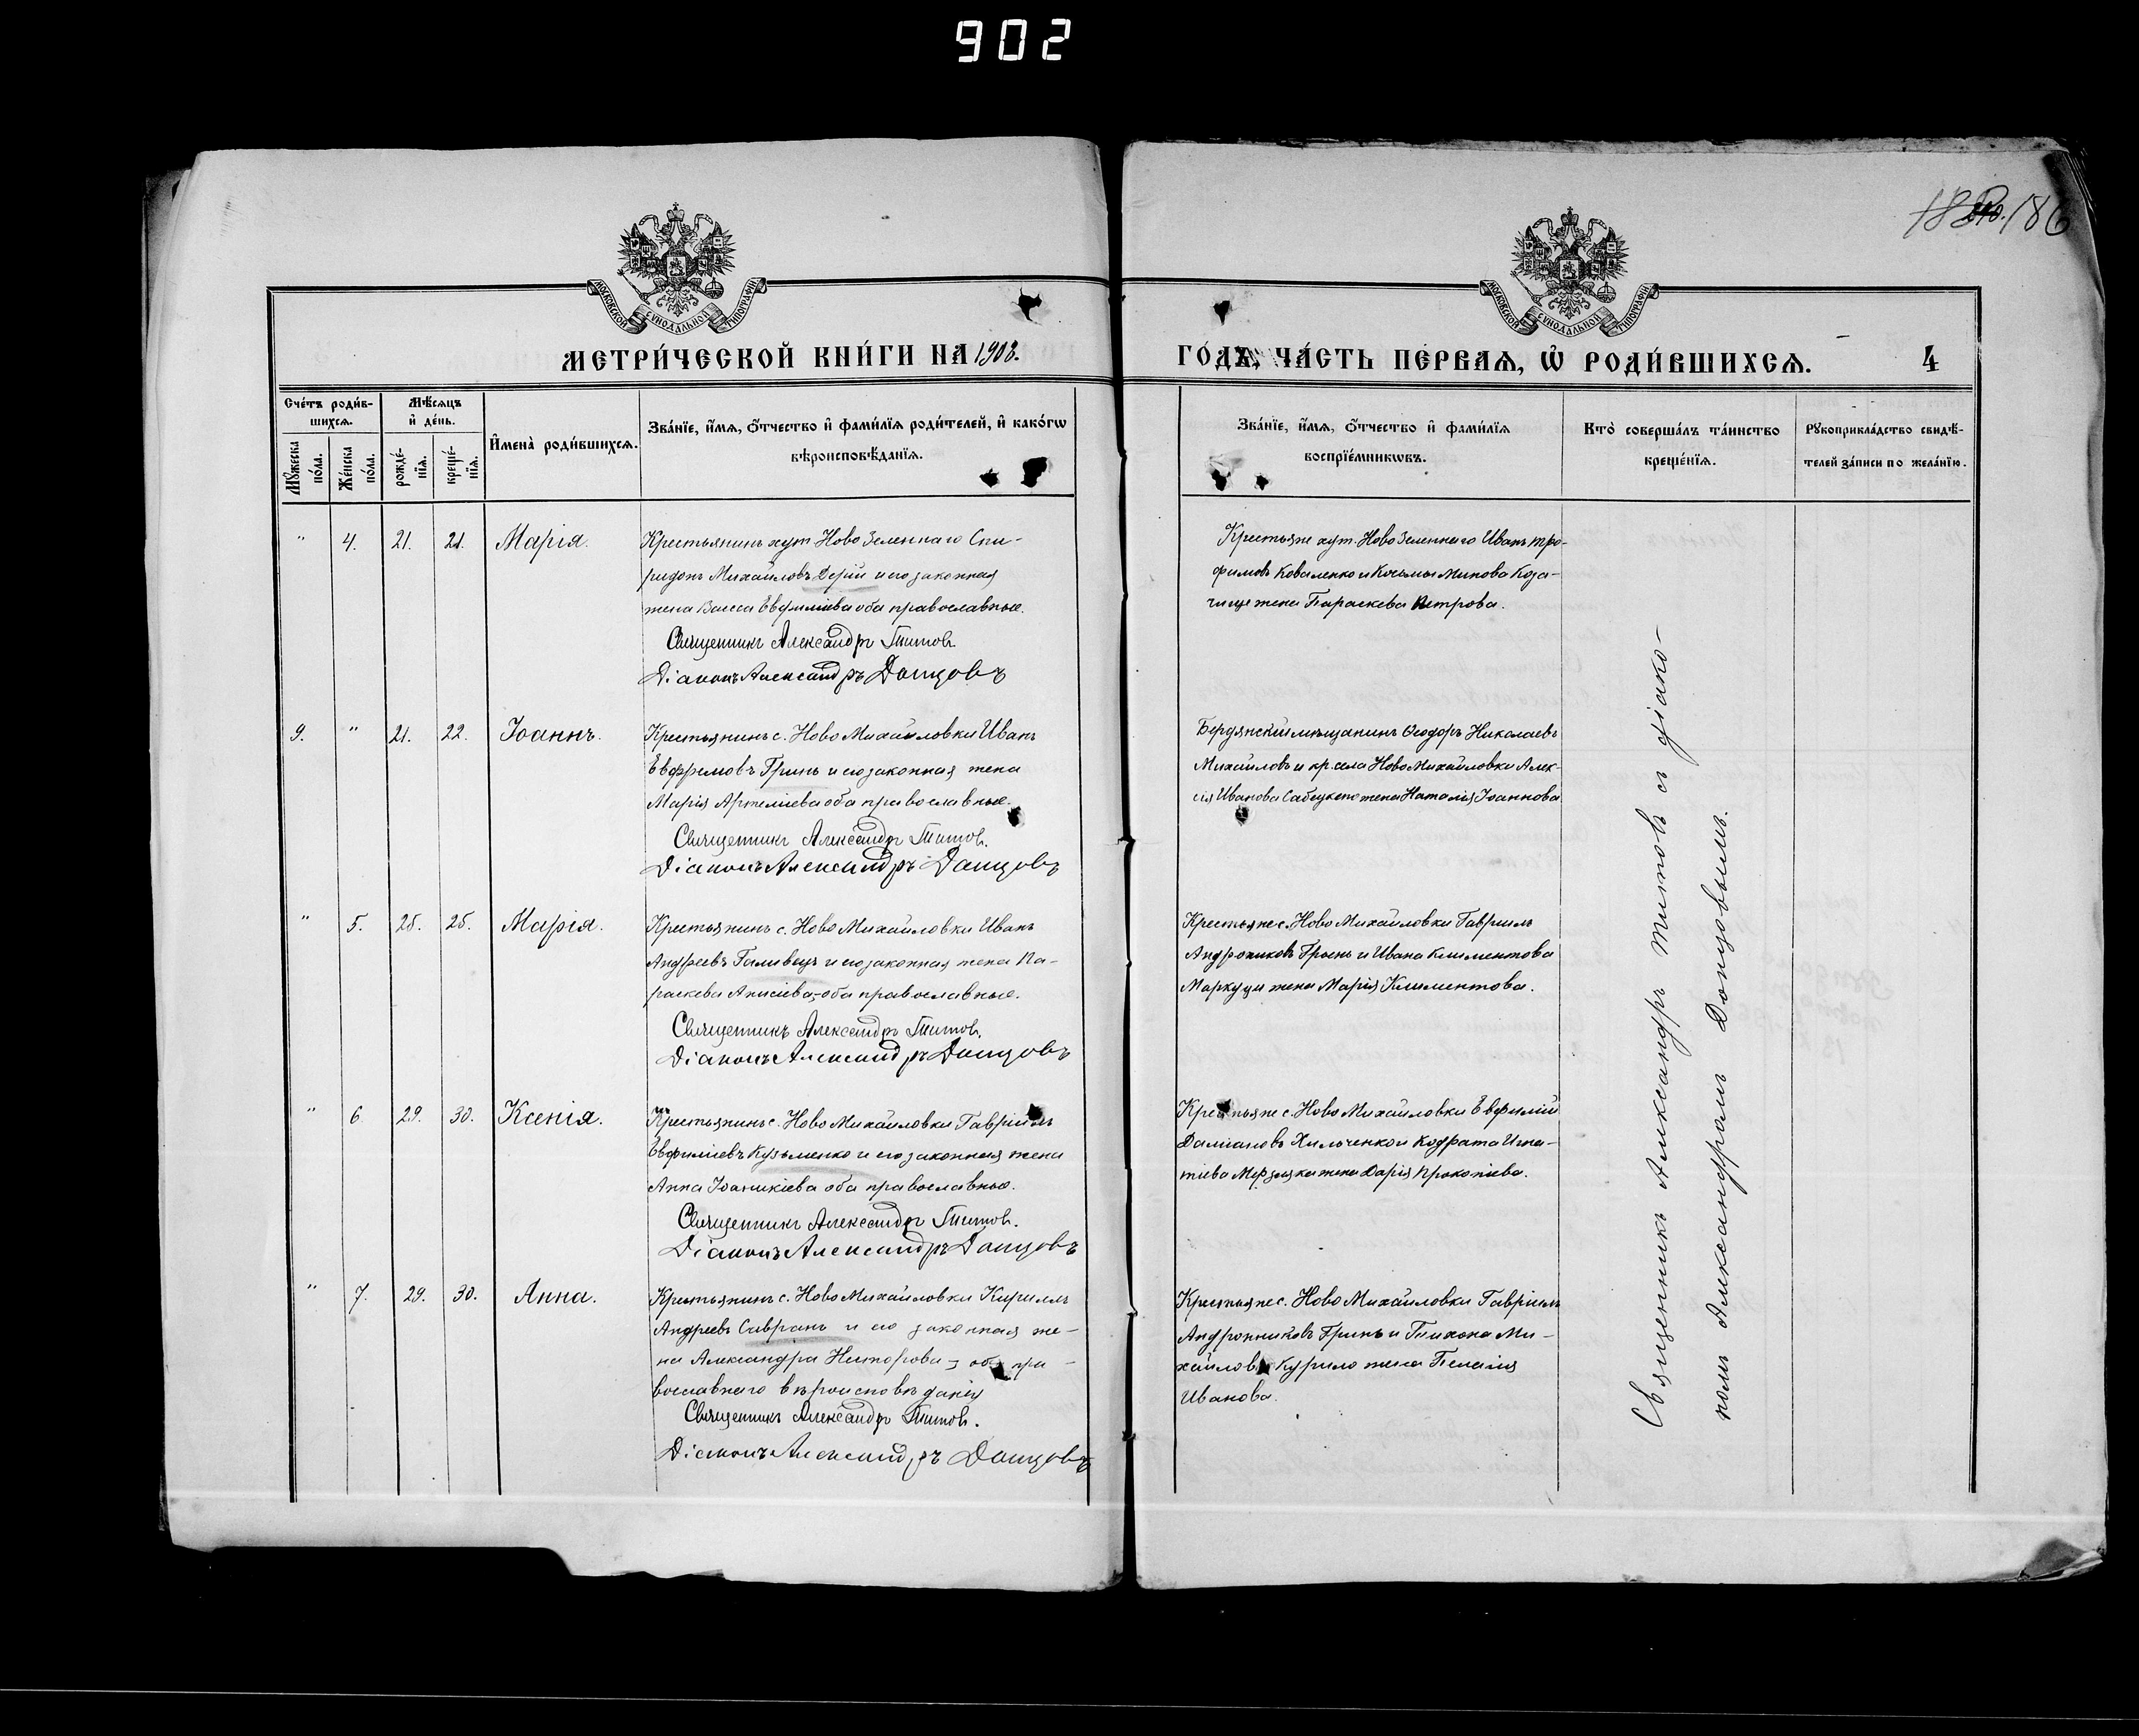 902
186
МОСКОВСКОЙ СУНОДАЛЬНОЙ ТИПОГРАФІИ
МОСКОВСКОЙ СУНОДАЛЬНОЙ ТИПОГРАФІИ
МЕТРИ́ЧЕСКОЙ КНИ́ГИ НА 1908.
ГО́ДЪ, ЧА́СТЬ ПЕ́РВАѦ, Ѡ҆ РОДИ́ВШИХСѦ.
4
Сче́тъ роди́в-
шихсѧ.
Мѣ́сѧцъ
и҆ де́нь.
И҆мена̀ роди́вшихсѧ.
Зва́нїе, и҆́мѧ, ѻ҆́тчество и҆ фами́лїѧ роди́телей, и҆ како́гѡ
вѣроисповѣ́данїѧ.
Мꙋ́жеска
по́ла.
Же́нска
по́ла.
рожде́-
нїѧ.
креще́-
нїѧ.
Зва́нїе, и҆́мѧ, ѻ҆́тчество и҆ фами́лїѧ
воспрїе́мникѡвъ.
Кто̀ соверша́лъ та́инство
креще́нїѧ.
Рꙋкоприкла́дство свидѣ́-
телей за́писи по жела́нїю.
" 4. 21. 21. Марія.
Крестьянинъ хут. Ново Зеленнаго Спи-
ридонъ Михайловъ Дерій и его законная
жена Васса Евфиміева оба православные.
Священникъ Александръ Титовъ
Діаконъ Александръ Донцовъ
Крестьяне хут. Ново Зеленнаго Иванъ Тро-
фимовъ Коваленко и Косьмы Минова Коза-
чище жена Параскева Петрова.
9. " 21. 22. Іоаннъ.
Крестьянинъ с. Ново Михайловки Иванъ
Евфремовъ Гринь и его законная жена
Марія Артеміева оба православные.
Священникъ Александръ Титовъ.
Діаконъ Александръ Донцовъ
Бердянскій мѣщанинъ Ѳеодоръ Николаевъ
Михайловъ и кр. села Ново Михайловки Алек-
сія Иванова жена Наталія Іоаннова
" 5. 25. 25. Марія.
Крестьянинъ с. Ново Михайловки Иванъ
Андреевъ Галивецъ и его законная жена Па-
раскева Анисіева, оба православные.
Священникъ Александръ Титовъ.
Діаконъ Александръ Донцовъ
Крестьяне с. Ново Михайловки Гавріилъ
Андрониковъ Гринь и Ивана Климентова
Маркуци жена Марія Климентова.
" 6 29. 30. Ксенія.
Крестьянинъ с. Ново Михайловки Гавріилъ
Евфиміевъ Кузьменко и его законная жена
Анна Іоаникіева оба православные.
Священникъ Александръ Титовъ.
Діаконъ Александръ Донцовъ
Крестьяне с. Ново Михайловки Евфимій
Даміановъ Хильченко и Кодрата Игна-
тіева Мерзляка жена Дарія Прокопіева.
" 7. 29. 30. Анна.
Крестьянинъ с. Ново Михайловки Кириллъ
Андреевъ Савранъ и его законная же-
на Александра Никторова, оба пра-
вославнаго вѣроисповѣданія
Священникъ Александръ Титовъ.
Діаконъ Александръ Донцовъ
Крестьяне с. Ново Михайловки Гавріилъ
Андрониковъ Гринь и Тихона Ми-
хайлова Курило жена Пелагія
Иванова.
Священникъ Александръ Титовъ съ діако-
номъ Александромъ Донцовымъ.